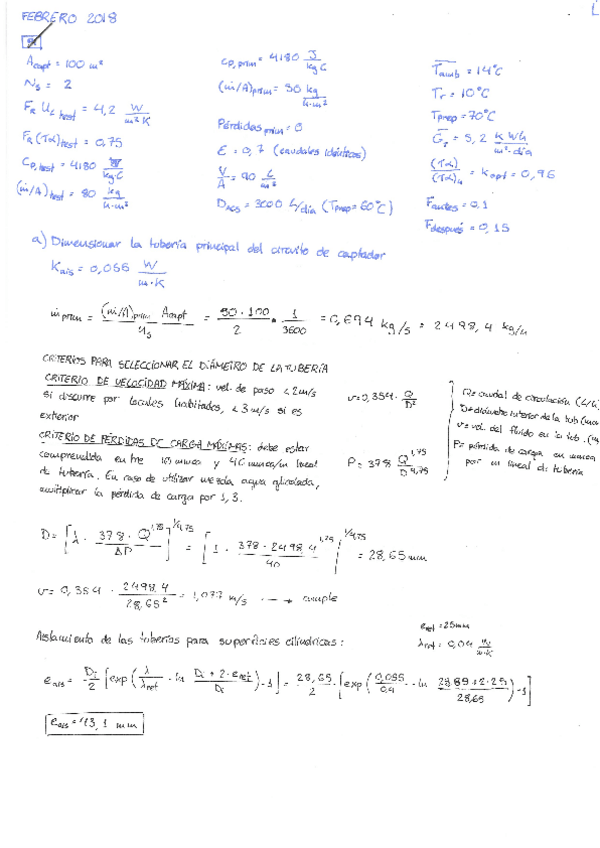 FEBRERO 2018
P1
A capt = 100 m²
Ns = 2
F_R U_L test = 4,2 W/m²K
F_R (τα) test = 0,75
Cp, test = 4180 W/kg·C
(ṁ/A) test = 80 kg/h·m²
Cp, prim = 4180 J/kg·C
(ṁ/A) prim = 50 kg/h·m²
Pérdidas prim = 0
ε = 0,7 (caudales idénticos)
V/A = 90 L/m²
D_ACS = 3000 L/día (Tprep = 60°C)
T̄amb = 14°C
Tr = 10°C
Tprep = 70°C
G̅ = 5,2 kWh/m²·dia
(τα)/(τα)n = Kopt = 0,96
Fantes = 0,1
Fdespués = 0,15
a) Dimensionar la tubería principal del circuito de captador
Kais = 0,055 W/m·K
ṁ prim = (ṁ/A)prim Acapt / Ns = 50·100/2 · 1/3600 = 0,694 kg/s = 2498,4 kg/h
CRITERIOS PARA SELECCIONAR EL DIÁMETRO DE LA TUBERÍA
CRITERIO DE VELOCIDAD MÁXIMA: vel. de paso < 2 m/s
si discurre por locales habitados, < 3 m/s si es
exterior
v = 0,354 · Q/D²
Q = caudal de circulación (L/h)
D = diámetro interior de la tub (mm
v = vel. del fluido en la tub. (m
P = pérdida de carga en mmca
por m lineal de tubería
CRITERIO DE PÉRDIDAS DE CARGA MÁXIMAS: debe estar
comprendida entre 10 mmca y 40 mmca/m lineal
de tubería. En caso de utilizar mezcla agua glicolada,
multiplicar la pérdida de carga por 1,3.
P = 378 Q^1,75 / D^4,75
D = [λ · 378 · Q^1,75 / ΔP]^1/4,75 = [1 · 378 · 2498,4^1,75 / 40]^1/4,75 = 28,65 mm
v = 0,354 · 2498,4 / 28,65² = 1,077 m/s → cumple
Aislamiento de las tuberías para superficies cilíndricas:
eref = 25 mm
λref = 0,04 W/m·K
eais = Di/2 [exp(λ/λref · ln Di + 2·eref / Di) - 1] = 28,65/2 · [exp(0,055/0,4 · ln 28,89+2·25 / 28,65) - 1]
eais = 43,1 mm